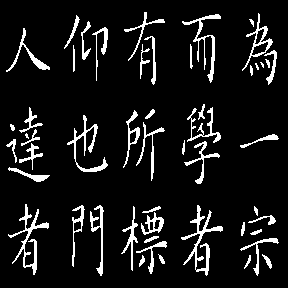 為一宗
而學者
有所標
仰也門
人達者